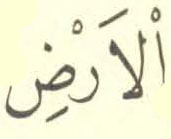 اْلاَرْضِ